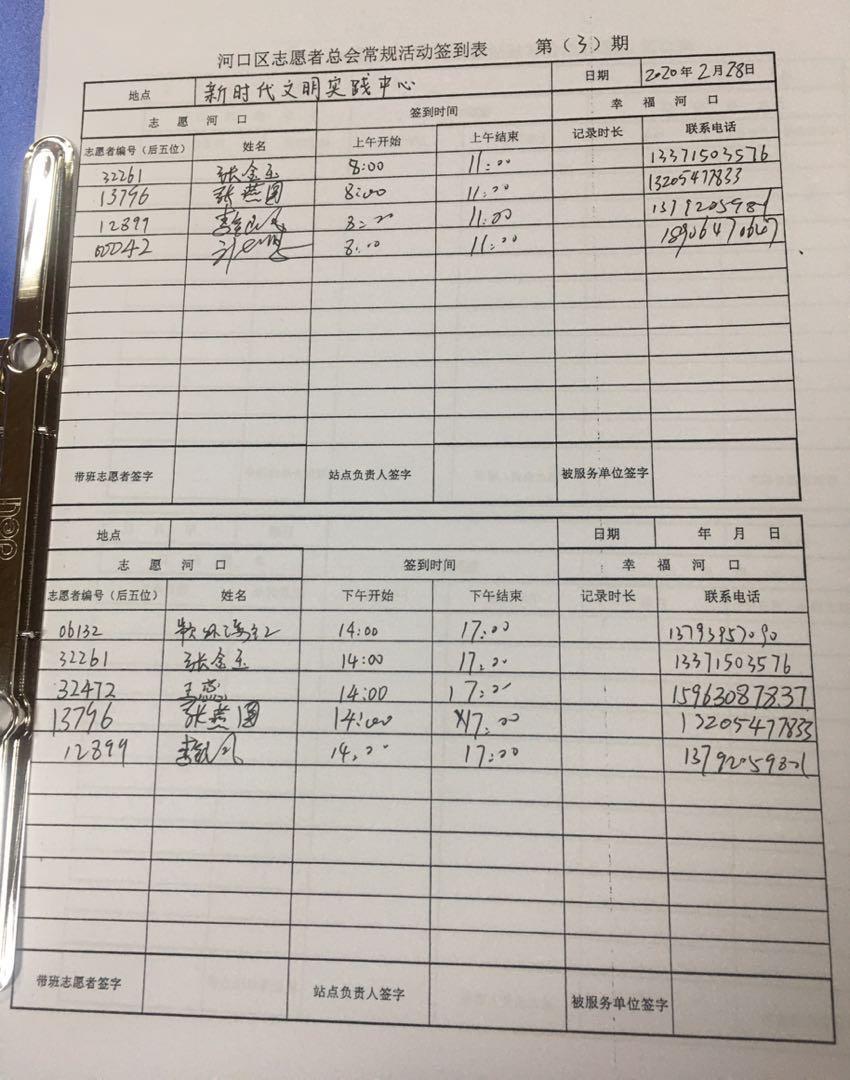 河口区志愿者总会常规活动签到表 第（3）期
地点 新时代文明实践中心 日期 2020年2月28日
志愿河口 签到时间 幸福河口
志愿者编号（后五位） 姓名 上午开始 上午结束 记录时长 联系电话
32261 张金玉 8:00 11:00 13371503576
13796 张燕图 8:00 11:00 13205477833
12899 8:00 11:00
00042 8:00 11:00
带班志愿者签字 站点负责人签字 被服务单位签字
地点 日期 年 月 日
志愿河口 签到时间 幸福河口
志愿者编号（后五位） 姓名 下午开始 下午结束 记录时长 联系电话
06132 14:00 17:00 13793957090
32261 张金玉 14:00 17:00 13371503576
32472 王燕 14:00 17:00 15963087837
13796 张燕图 14:00 17:00 13205477833
12899 14:00 17:00
带班志愿者签字 站点负责人签字 被服务单位签字